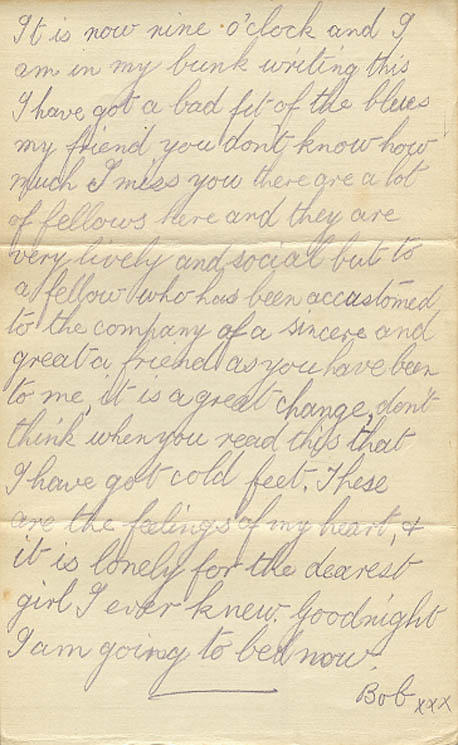 It is now nine o'clock and I
am in my bunk writing this
I have got a bad fit of the blues
my friend you don't know how
much I miss you there are a lot
of fellows here and they are
very lively and social but to
a fellow who has been accustomed
to the company of a sincere and
great a friend as you have been
to me, it is a great change, don't
think when you read this that
I have got cold feet. These
are the feelings of my heart, &
it is lonely for the dearest
girl I ever knew. Goodnight
I am going to bed now.
Bob xxx